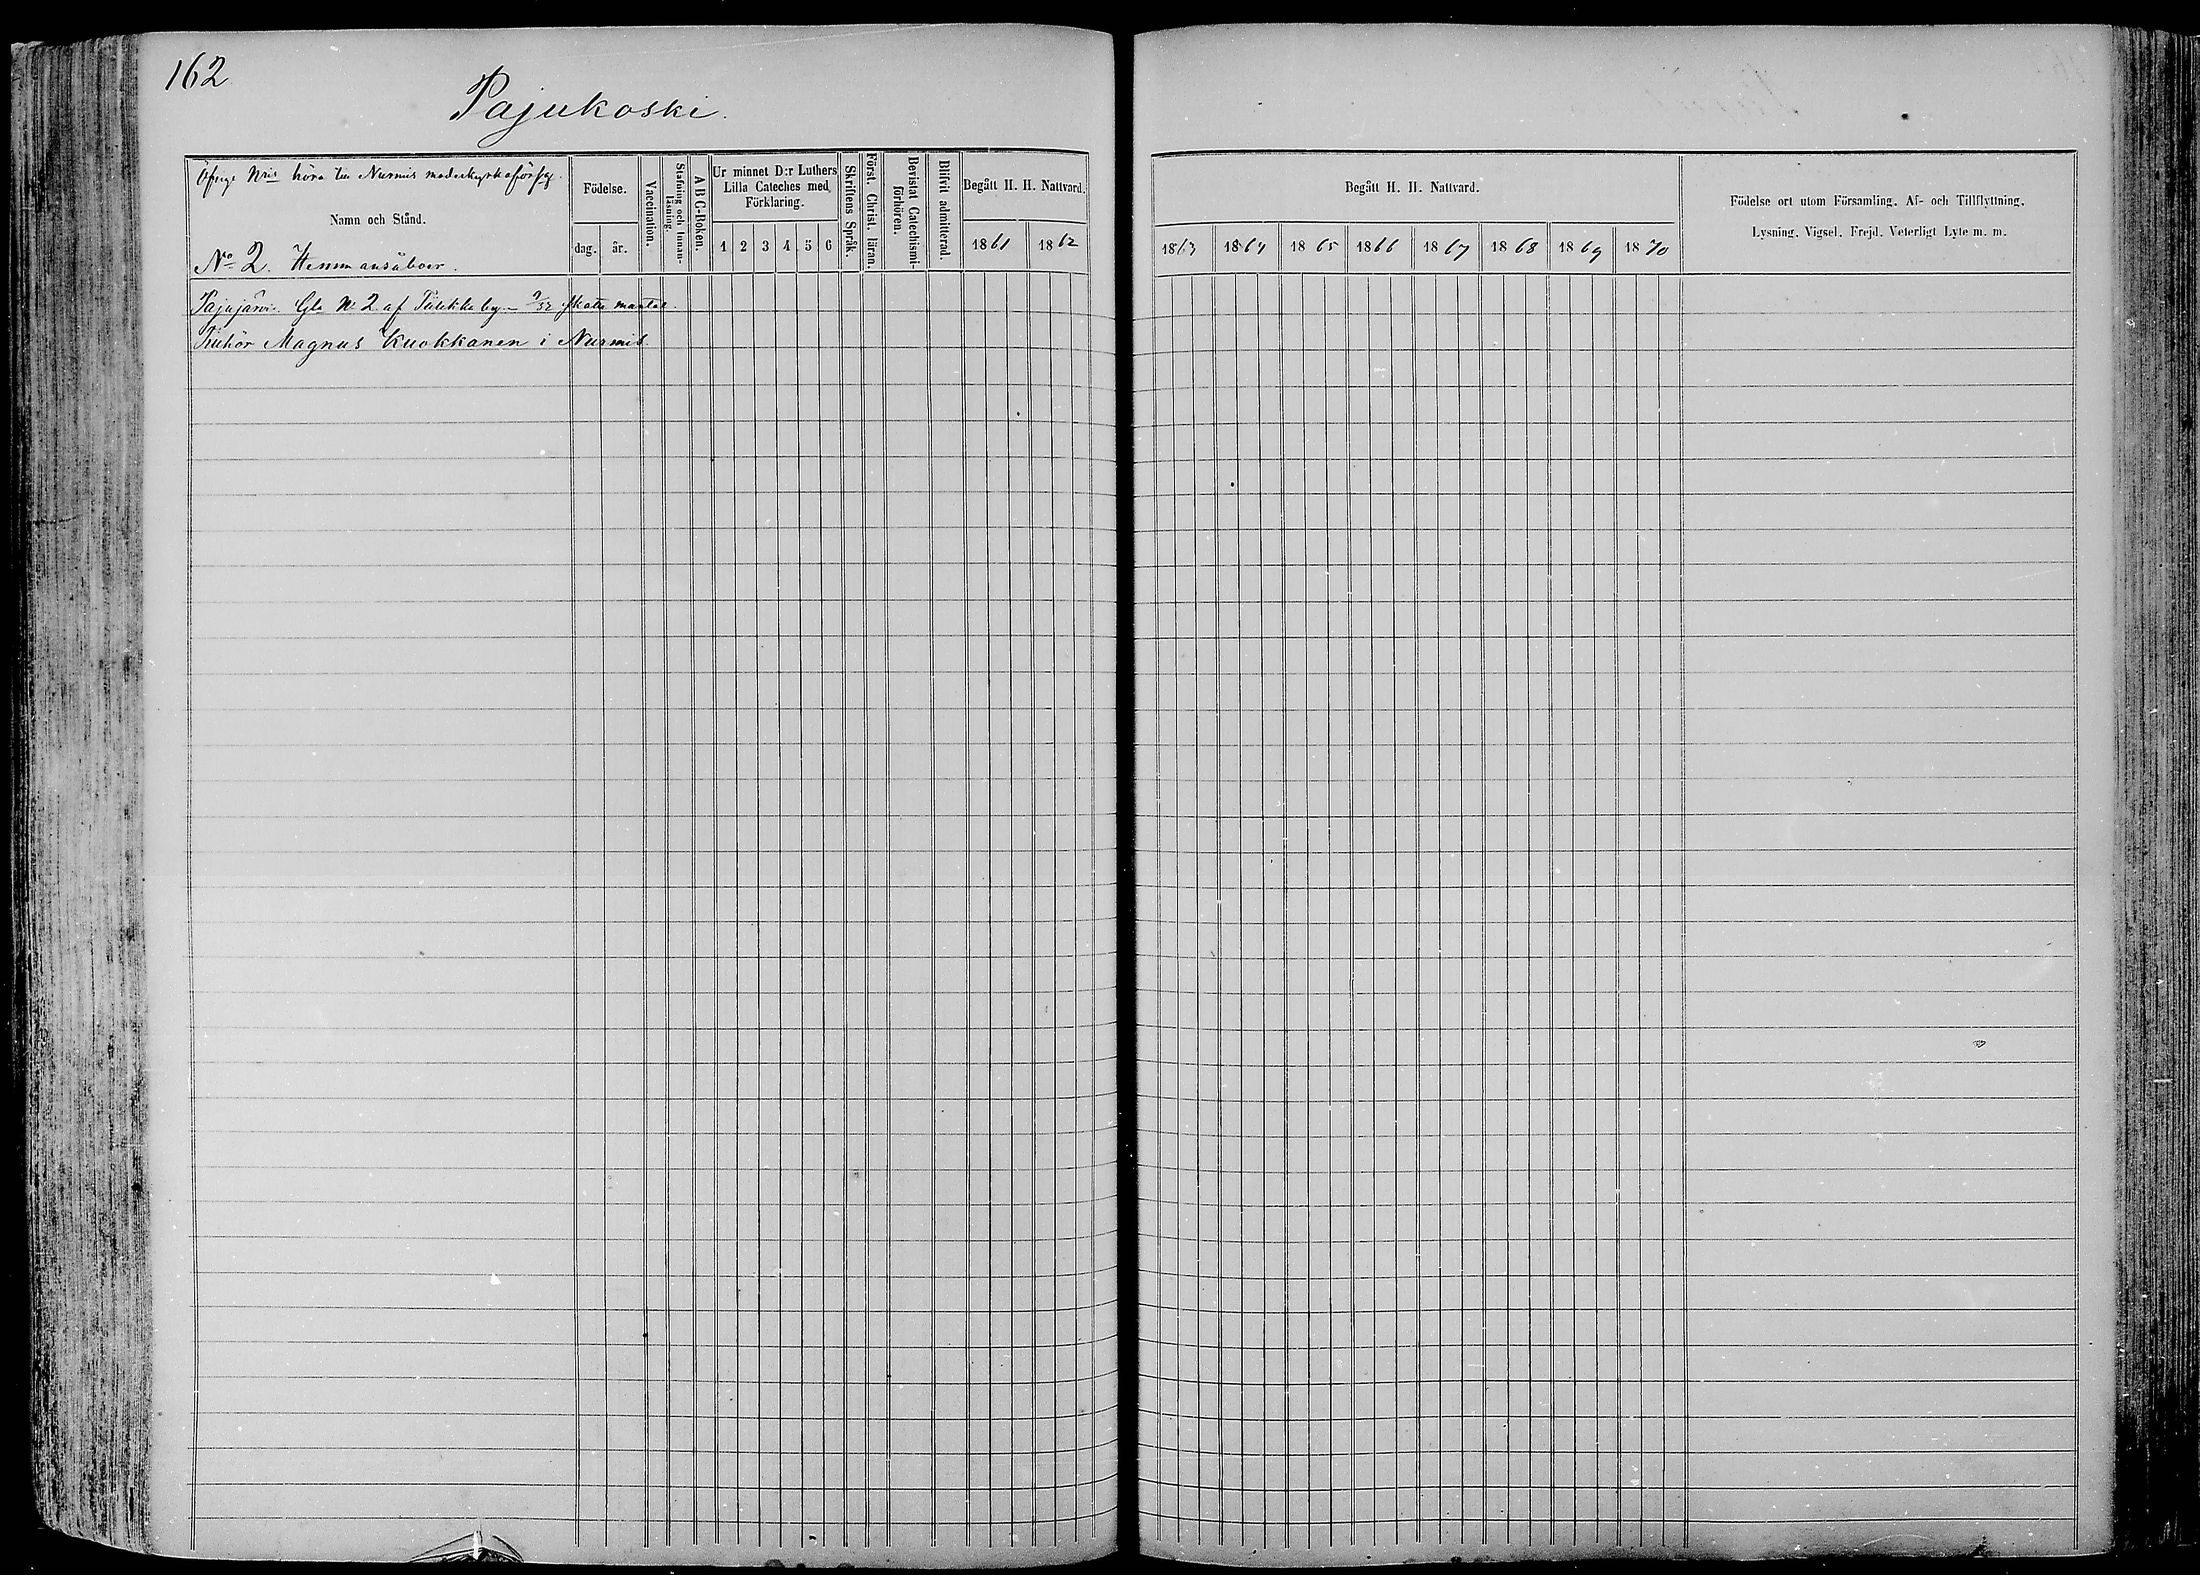 162
Pajukoski.
Öfrige Nris höra till Nurmis moderkyrkoförsg.
Namn och Stånd.
No 2. Hemmansåboer.
Födelse.
dag. år.
Vaccination.
Stafning och Innan-läsning.
A B C-Boken.
Ur minnet D:r Luthers
Lilla Cateches med
Förklaring.
1 2 3 4 5 6
Skriftens Språk.
Först. Christ. läran.
Bevistat Catechismi-förhören.
Blifvit admitterad.
Begått H. H. Nattvard.
1861 1862
Begått H. H. Nattvard.
1863 1864 1865 1866 1867 1868 1869 1870
Födelse ort utom Församling. Af- och Tillflyttning.
Lysning. Vigsel. Frejd. Veterligt Lyte m. m.
Pajujärvi. Gla No 2 af by skatte mantal.
Tillhör Magnus Kuokkanen i Nurmis.